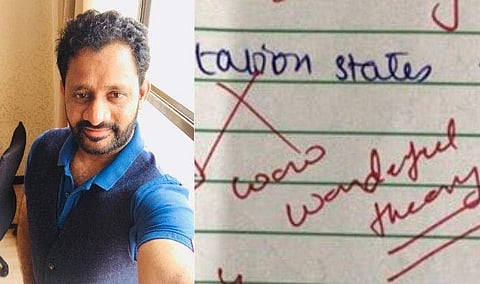 tation states
wow
wonderful
theory